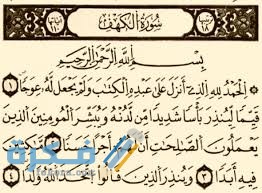 ترتيبها ١٨ سُورَةُ الكَهْفِ آياتها ١١٠
بِسْمِ اللَّهِ الرَّحْمَٰنِ الرَّحِيمِ
الْحَمْدُ لِلَّهِ الَّذِي أَنزَلَ عَلَىٰ عَبْدِهِ الْكِتَٰبَ وَلَمْ يَجْعَل لَّهُ عِوَجَا ۜ ١
قَيِّمًا لِّيُنذِرَ بَأْسًا شَدِيدًا مِّن لَّدُنْهُ وَيُبَشِّرَ الْمُؤْمِنِينَ الَّذِينَ
يَعْمَلُونَ الصَّٰلِحَٰتِ أَنَّ لَهُمْ أَجْرًا حَسَنًا ٢ مَّٰكِثِينَ
فِيهِ أَبَدًا ٣ وَيُنذِرَ الَّذِينَ قَالُوا اتَّخَذَ اللَّهُ وَلَدًا ٤
فكرة